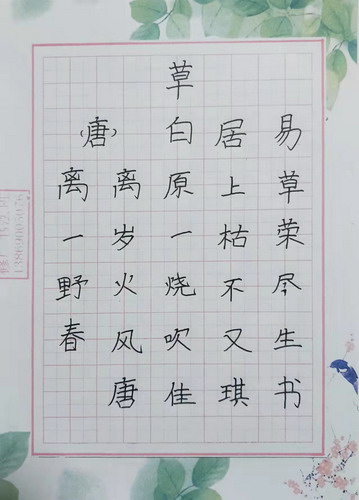 草
(唐)白居易
离离原上草
一岁一枯荣
野火烧不尽
春风吹又生
唐佳琪书